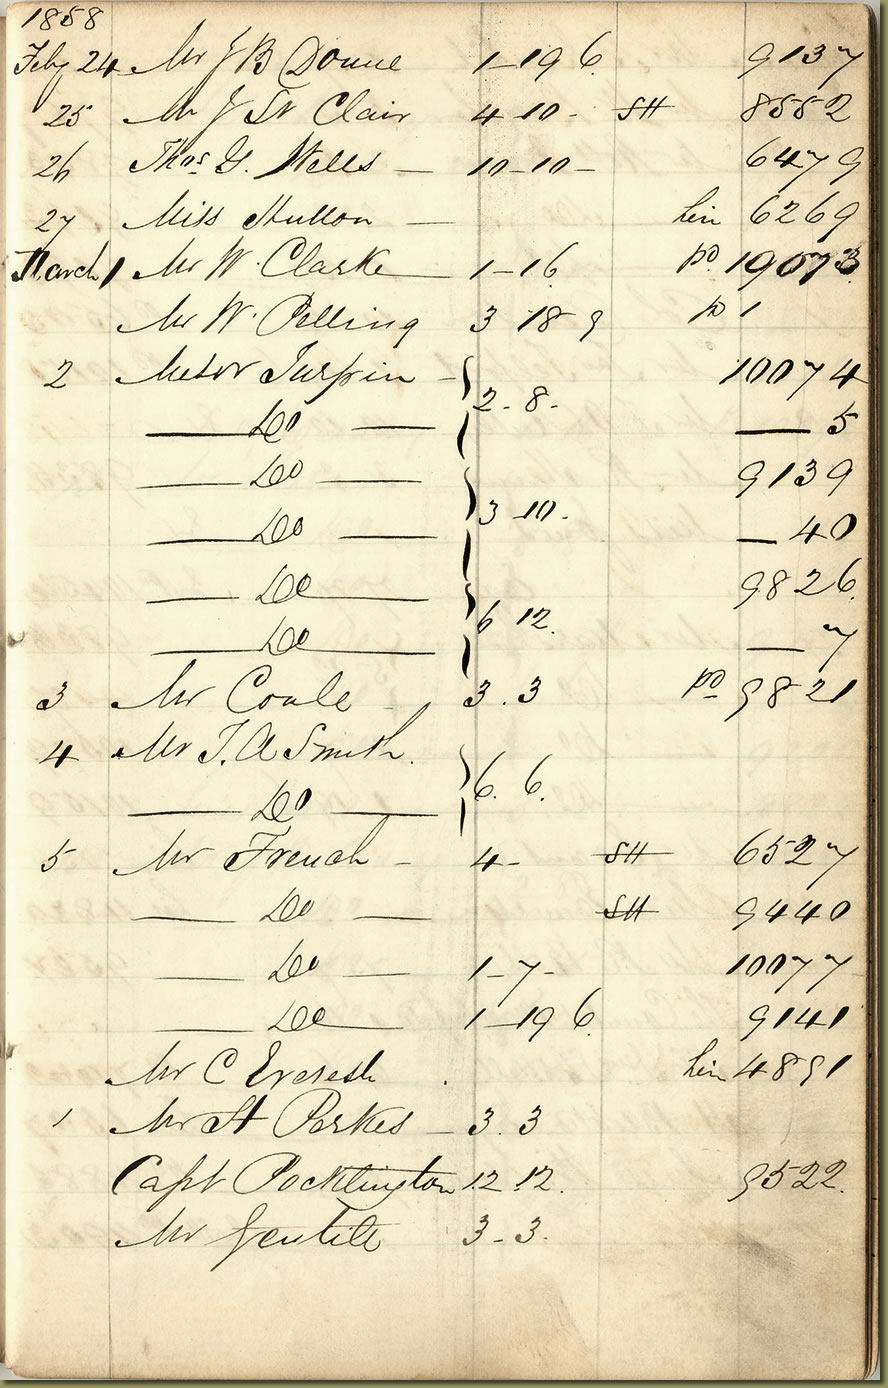 1858
Feby 24 Mr J B Donne 1-19 6 9137
25 Mr J St Clair 4-10- SH 8552
26 Thos G. Wells — 10-10- 6479
27 Miss Hutton — lin 6269
March 1 Mr W. Clarke 1-16 pd 19073
Mr W. Pilling 3 18 9 p 1
2 Turpin - 2. 8. 10074
— Do — — 5
— Do — 3 10. 9139
— Do — — 40
— Do — 6 12. 9826
— Do — — 7
3 Mr Coale - 3. 3 pd 9821
4 Mr T. A Smith. 6. 6.
— Do —
5 Mr French - 4- SH 6527
— Do — SH 9440
— Do — 1-7- 10077
— Do — 1-19 6 9141
Mr C Everest . lin 4891
1 Mr H Perkes - 3. 3
Capt Pocklington 12 12. 9522.
Mr Gentile 3-3.